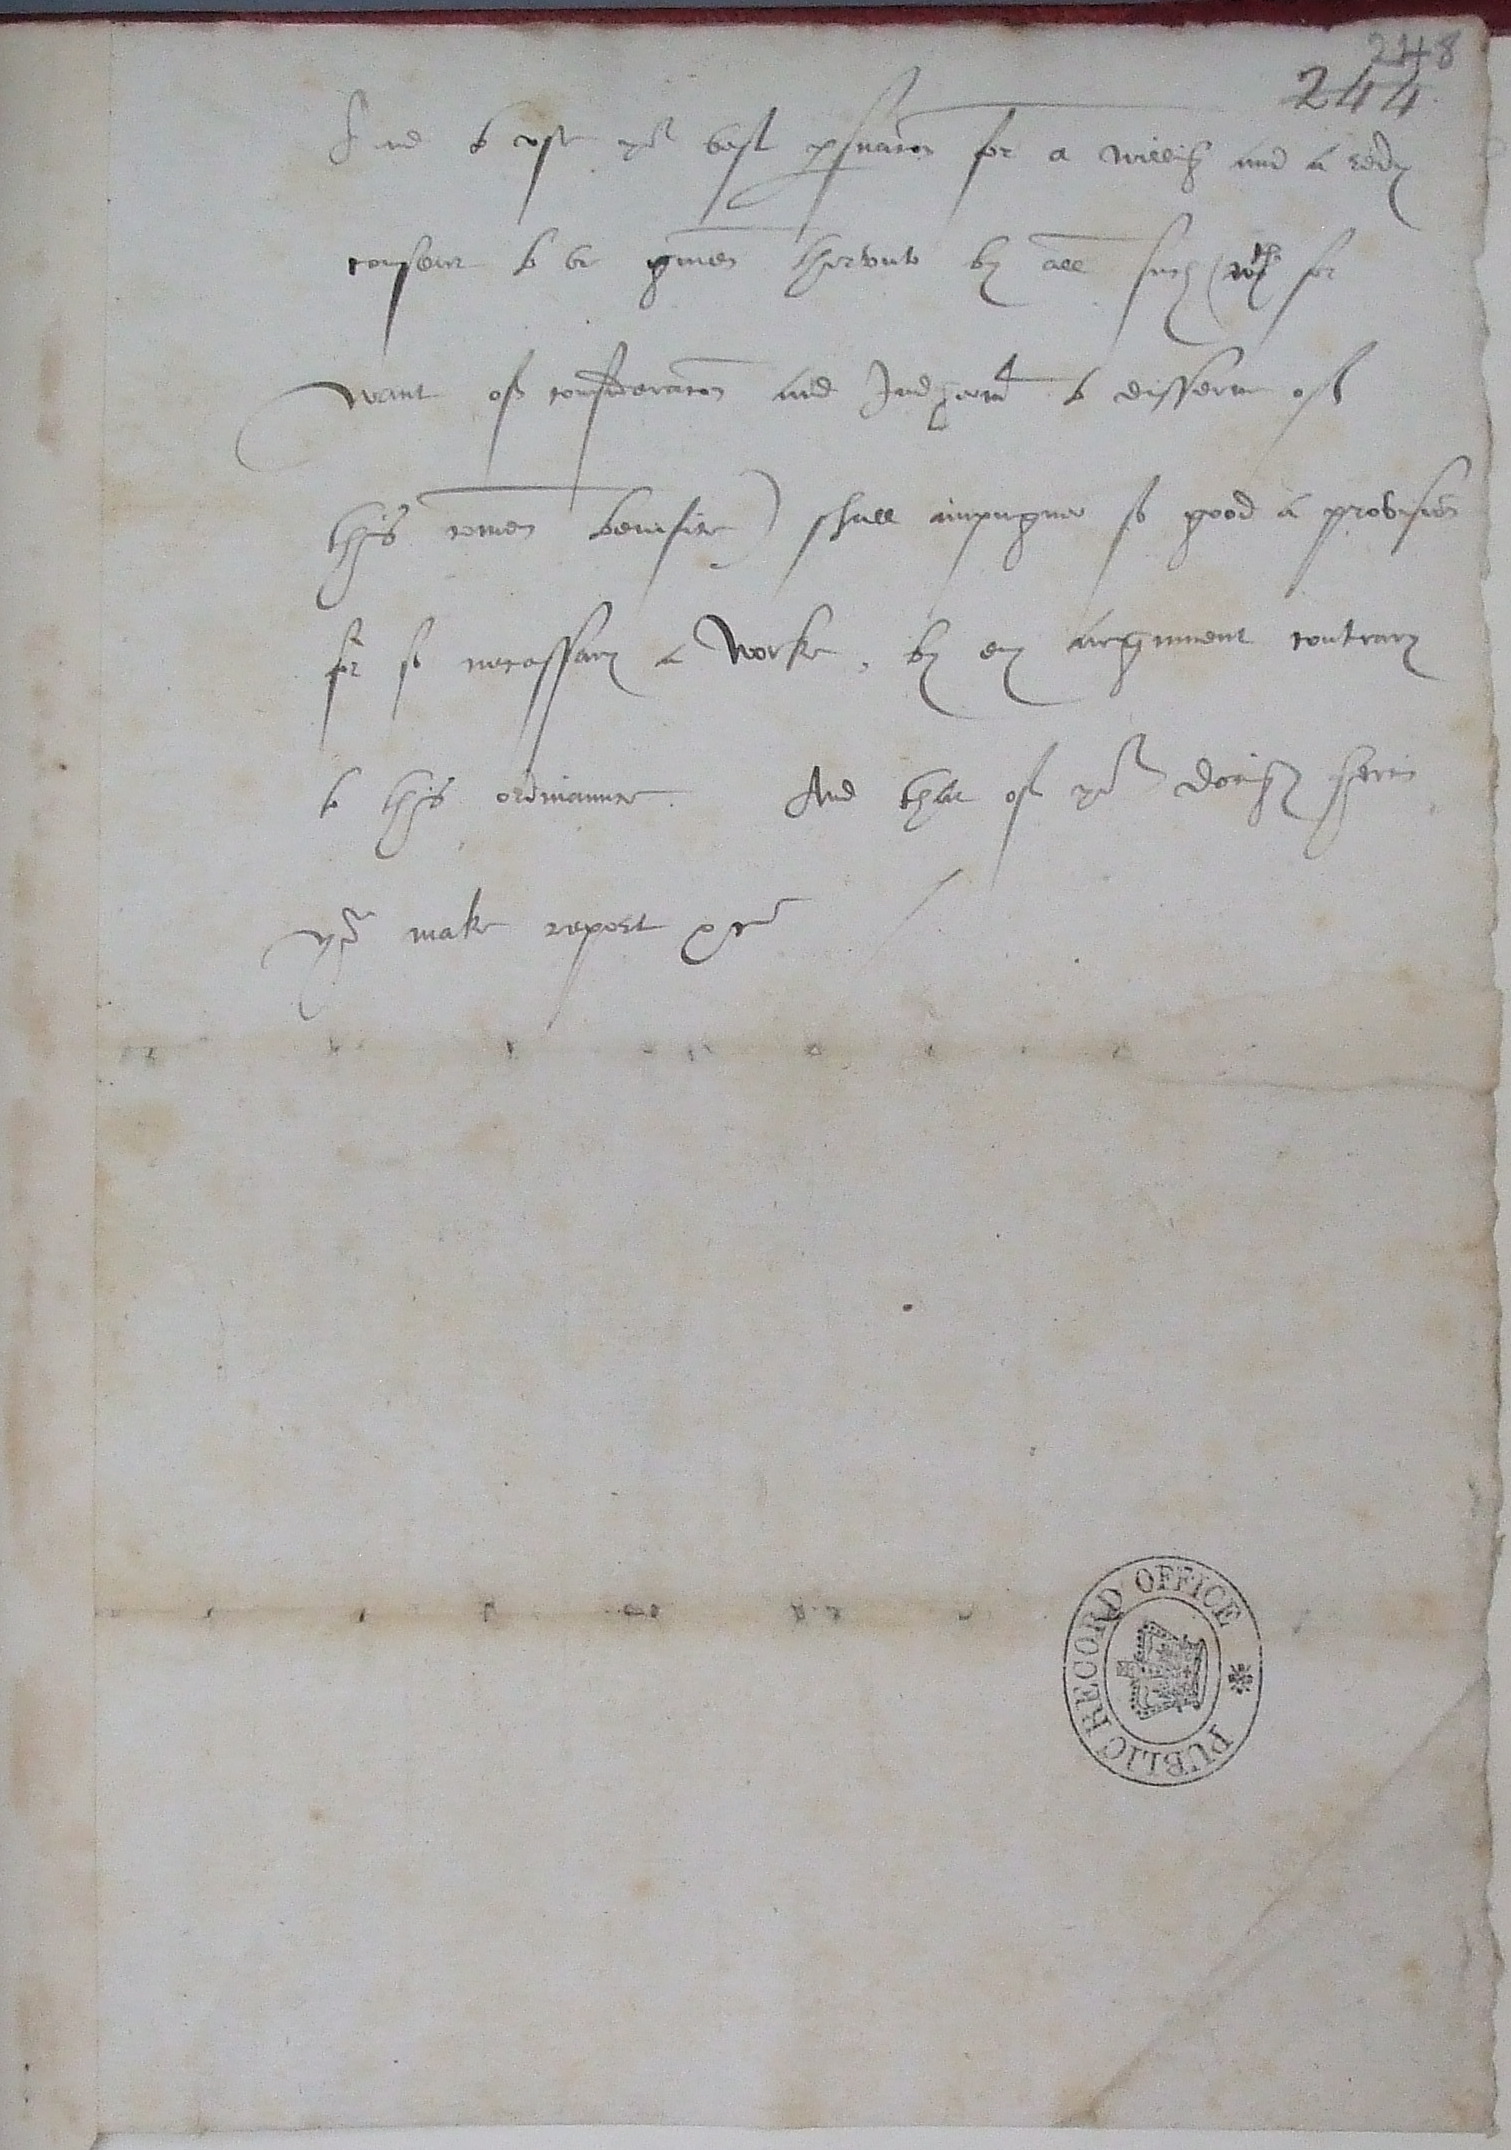 248
244
And to vse yor best pswacon for a willing and a redy
consent to be given thervnto by all such (wch for
want of consideracon and Judgemt to disserne of
this comen benifite) shall impugne so good a provision
for so necessary a worke, by eny argument contrary
to this ordinaunce. And that of yor doinge herin
yow make report &c
PUBLIC RECORD OFFICE